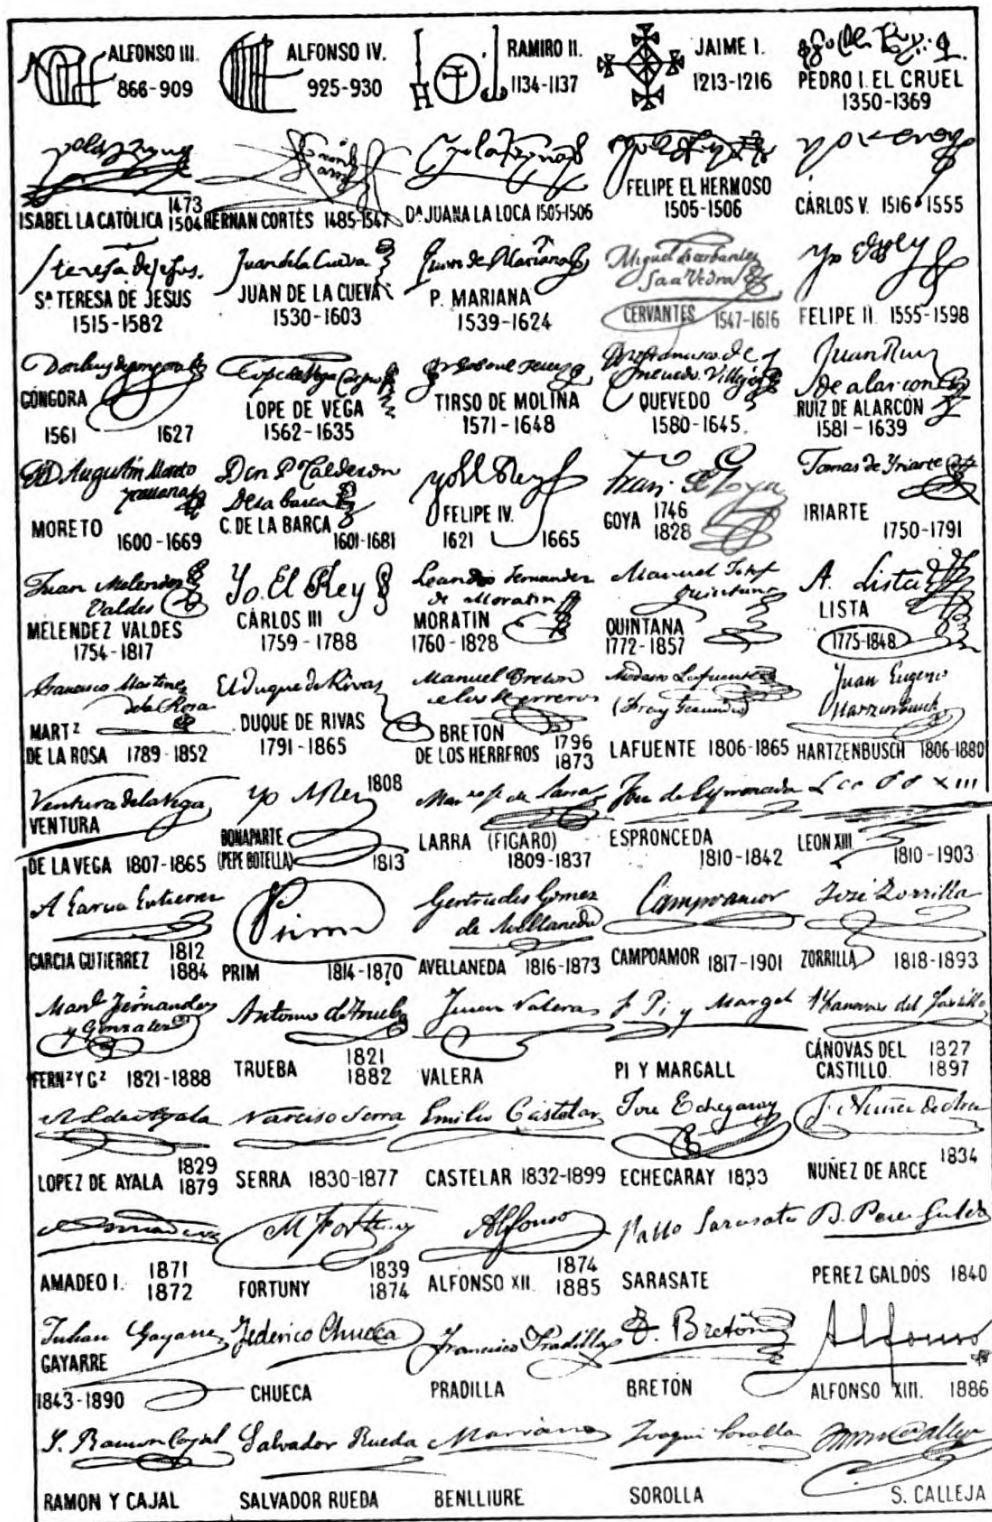 ALFONSO III.
866-909
ALFONSO IV.
925-930
RAMIRO II.
1134-1137
JAIME I.
1213-1216
PEDRO I. EL CRUEL
1350-1369
ISABEL LA CATÓLICA 1473 1504
HERNAN CORTÉS 1485-1547
Dª JUANA LA LOCA 1505-1506
FELIPE EL HERMOSO
1505-1506
CÁRLOS V. 1516-1555
teresa de jesus.
Sª TERESA DE JESUS
1515-1582
Juan de la Cueva
JUAN DE LA CUEVA
1530-1603
Juan de Mariana
P. MARIANA
1539-1624
Miguel de Cerbantes
Saavedra
CERVANTES 1547-1616
FELIPE II. 1555-1598
Don luys de gongora
GÓNGORA
1561 1627
Lope de Vega Carpio
LOPE DE VEGA
1562-1635
TIRSO DE MOLINA
1571-1648
QUEVEDO
1580-1645.
Juan Ruiz
de alarcon
RUIZ DE ALARCÓN
1581-1639
D Augustin Moreto
MORETO
1600-1669
Don P Calderon
de la barca
C. DE LA BARCA
1601-1681
yo el Rey
FELIPE IV.
1621 1665
Fran. de Goya
GOYA 1746
1828
Tomas de Yriarte
IRIARTE
1750-1791
Juan Melendez
Valdes
MELENDEZ VALDES
1754-1817
Yo. El Rey
CÁRLOS III
1759-1788
Leandro Fernandez
de Moratin
MORATIN
1760-1828
Manuel Josef
Quintana
QUINTANA
1772-1857
A. Lista
LISTA
1775-1848
Francisco Martinez
de la Rosa
MARTZ
DE LA ROSA 1789-1852
El Duque de Rivas
DUQUE DE RIVAS
1791-1865
Manuel Breton
de los Herreros
BRETON
DE LOS HERREROS 1796
1873
Modesto Lafuente
(Fray Gerundio)
LAFUENTE 1806-1865
Juan Eugenio
Hartzenbusch
HARTZENBUSCH 1806-1880
Ventura de la Vega
VENTURA
DE LA VEGA 1807-1865
1808
BONAPARTE
(PEPE BOTELLA) 1813
LARRA (FIGARO)
1809-1837
José de Espronceda
ESPRONCEDA
1810-1842
LEON XIII
1810-1903
A Garcia Gutierrez
GARCIA GUTIERREZ 1812
1884
Prim
PRIM 1814-1870
Gertrudis Gomez
de Avellaneda
AVELLANEDA 1816-1873
Campoamor
CAMPOAMOR 1817-1901
José Zorrilla
ZORRILLA 1818-1893
Manl Fernandez
y Gonzalez
FERNZ Y GZ 1821-1888
Antonio de Trueba
TRUEBA 1821
1882
Juan Valera
VALERA
F Pi y Margall
PI Y MARGALL
A Canovas del Castillo
CÁNOVAS DEL
CASTILLO. 1827
1897
A L de Ayala
LOPEZ DE AYALA 1829
1879
Narciso Serra
SERRA 1830-1877
Emilio Castelar
CASTELAR 1832-1899
José Echegaray
ECHEGARAY 1833
G. Nuñez de Arce
NUÑEZ DE ARCE 1834
AMADEO I. 1871
1872
M Fortuny
FORTUNY 1839
1874
Alfonso
ALFONSO XII. 1874
1885
Pablo Sarasate
SARASATE
B. Perez Galdós
PEREZ GALDÓS 1840
Julian Gayarre
GAYARRE
1843-1890
Federico Chueca
CHUECA
Francisco Pradilla
PRADILLA
T. Bretón
BRETÓN
Alfonso
ALFONSO XIII. 1886
S. Ramon Cajal
RAMON Y CAJAL
Salvador Rueda
SALVADOR RUEDA
Mariano
BENLLIURE
Joaquin Sorolla
SOROLLA
S. CALLEJA